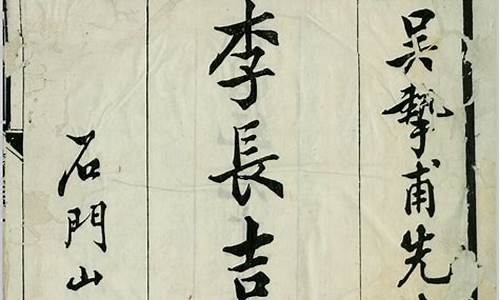 吴摯甫先
李長吉
石門山